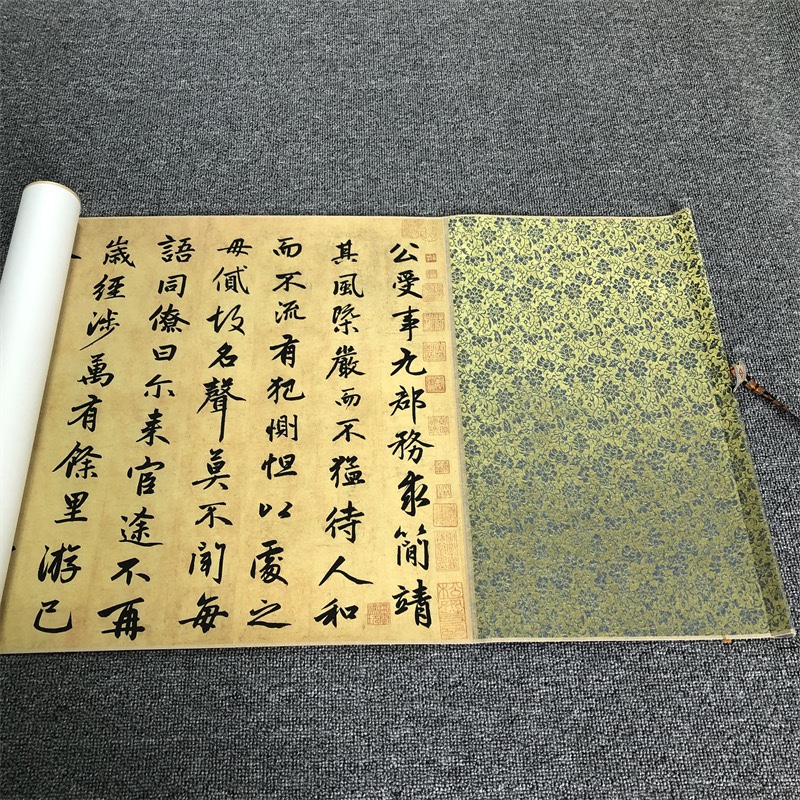 公受事九郡務求簡靖
其風槩嚴而不猛待人和
而不流有犯惻怛以處之
毋貳故名聲莫不聞每
語同僚曰尓来官途不再
歳經涉萬有餘里游已